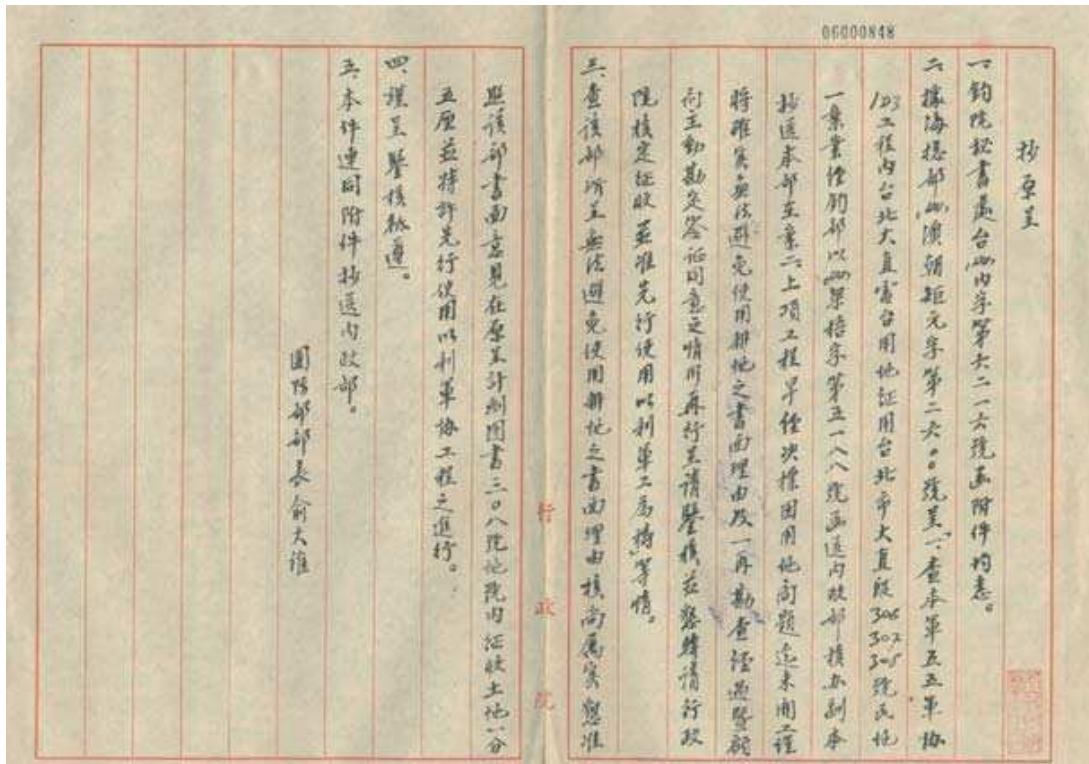 06000848
抄原呈
一、鈞院秘書處台(44)內字第六二一六號函附件均悉。
二、據海總部(44)濱朝矩元字第二六〇〇號呈「一、查本軍五五軍協
123工程內台北大直電台用地征用台北市大直段306 302 305號民地
一案業經鈞部以(44)字第五一八八號函送內政部核辦副本
抄送本部在案二、上項工程早經決標因用地問題迄未開工謹
將確實無法避免使用耕地之書面理由及一再勘查經過暨
付主動勘定簽証同意之情形再行呈請鑒核並懇轉請行政
院核定征收並准先行使用以利軍工為禱」等情。
三、查該部所呈無法避免使用耕地之書面理由核尚屬實懇准
照該部書面意見在原呈計劃圖書三〇八號地號內征收土地一分
五厘並特許先行使用以利軍協工程之進行。
四、謹呈鑒核祇遵。
五、本件連同附件抄送內政部。
國防部部長俞大維
行政院